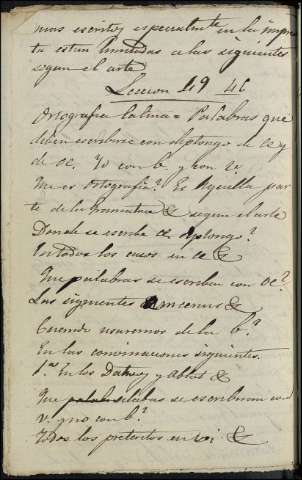 mas escritos especialmte en la impren
ta estan limitadas a las siguientes
segun el arte
Leccion 49 46
Ortografia latina = Palabras que
deben escribirse con diptongo de æ y
de œ. Yo con b. y con v.
Que es Ortografia? Es Aquella par
te de la Gramatica & segun el arte
Donde se escribe æ diptongo?
En todos los casos en æ &
Que palabras se escriben con œ?
Las siguientes amœnus &
Cuando usaremos de la b?
En las convinaciones siguientes.
1.ª En los Dativos y Ablats &
Que palabras se escribiran con
v. y no con b?
Todos los preteritos en vi &